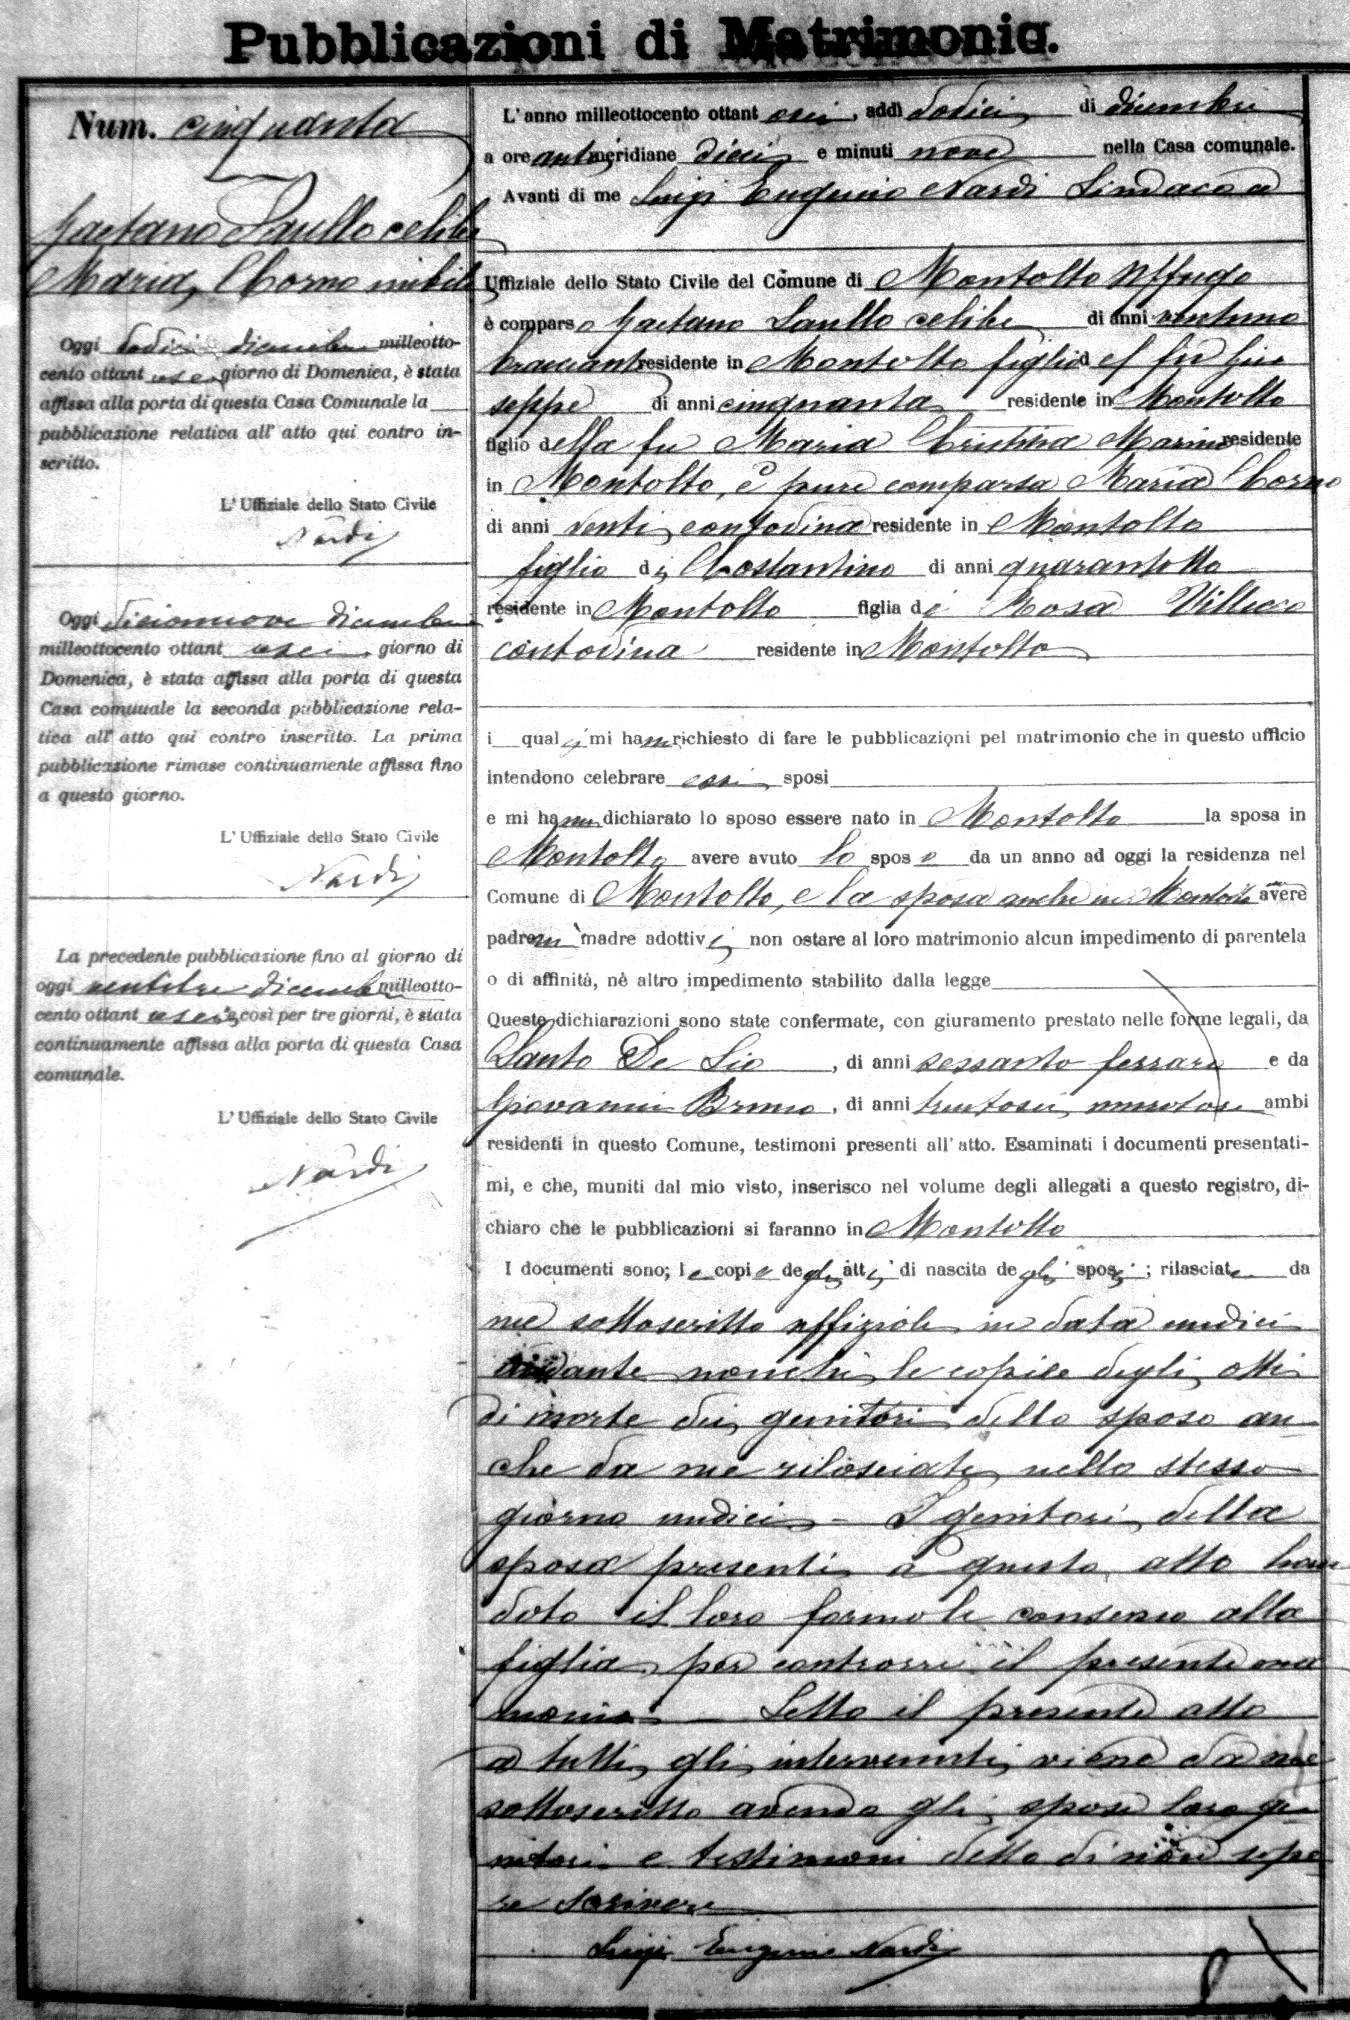 Pubblicazioni di Matrimonio.
Num. cinquanta
Gaetano Saullo celibe
Maria Chorno nubile
Oggi dodici dicembre milleotto-
cento ottantasei, giorno di Domenica, è stata
affissa alla porta di questa Casa Comunale la
pubblicazione relativa all' atto qui contro in-
scritto.
L' Uffiziale dello Stato Civile
Nardi
Oggi diciannove dicembre
milleottocento ottantasei, giorno di
Domenica, è stata affissa alla porta di questa
Casa comuuale la seconda pubblicazione rela-
tiva all' atto qui contro inscritto. La prima
pubblicazione rimase continuamente affissa fino
a questo giorno.
L' Uffiziale dello Stato Civile
Nardi
La precedente pubblicazione fino al giorno di
oggi ventitre dicembre milleotto-
cento ottantasei, così per tre giorni, è stata
continuamente affissa alla porta di questa Casa
comunale.
L' Uffiziale dello Stato Civile
Nardi
L'anno milleottocento ottantasei, addì dodici di dicembre
a ore antimeridiane dieci e minuti nove nella Casa comunale.
Avanti di me Luigi Eugenio Nardi Sindaco
Uffiziale dello Stato Civile del Comune di Montalto Uffugo
è comparso Gaetano Saullo celibe di anni ventuno
bracciante residente in Montalto figlio del fu Giu
seppe di anni cinquanta residente in Montalto
figlio della fu Maria Cristina Marino residente
in Montalto, è pure comparsa Maria Chorno
di anni venti contadina residente in Montalto
figlia di Costantino di anni quarantotto
residente in Montalto figlia di Rosa Villecco
contadina residente in Montalto
i quali mi hanno richiesto di fare le pubblicazioni pel matrimonio che in questo ufficio
intendono celebrare essi sposi
e mi hanno dichiarato lo sposo essere nato in Montalto la sposa in
Montalto avere avuto lo sposo da un anno ad oggi la residenza nel
Comune di Montalto, e la sposa anche in Montalto avere
padre madre adottivi non ostare al loro matrimonio alcun impedimento di parentela
o di affinità, nè altro impedimento stabilito dalla legge
Queste dichiarazioni sono state confermate, con giuramento prestato nelle forme legali, da
Santo De Lio, di anni sessanta ferraro e da
Giovanni Bruno, di anni trentasei, muratore ambi
residenti in questo Comune, testimoni presenti all' atto. Esaminati i documenti presentati-
mi, e che, muniti dal mio visto, inserisco nel volume degli allegati a questo registro, di-
chiaro che le pubblicazioni si faranno in Montalto
I documenti sono; le copie degli atti di nascita degli sposi; rilasciate da
me sottoscritto uffiziale in data undici
andante nonchè le copie degli atti
di morte dei genitori dello sposo an
che da me rilasciate nello stesso
giorno undici - I genitori della
sposa presenti a questo atto hanno
dato il loro formale consenso alla
figlia per contrarre il presente ma
monio - Letto il presente atto
a tutti gli intervenuti viene da me
sottoscritto avendo gli sposi loro ge
nitori e testimoni detto di non sape
re scrivere
Luigi Eugenio Nardi